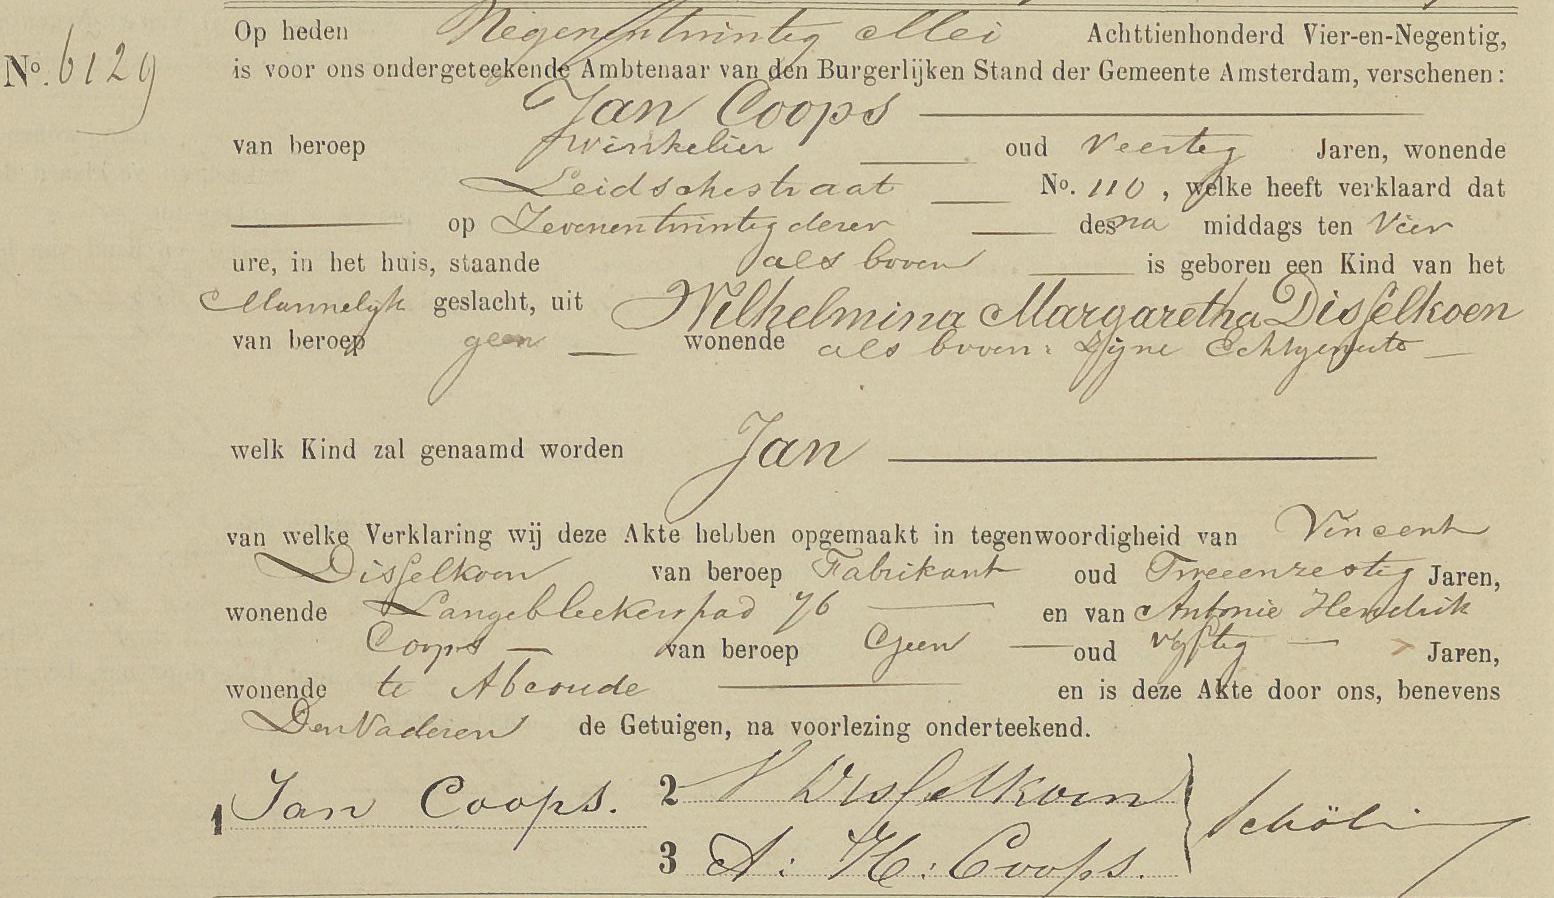 Op heden Negenentwintig Mei Achttienhonderd Vier-en-Negentig,
No. 6129 is voor ons ondergeteekende Ambtenaar van den Burgerlijken Stand der Gemeente Amsterdam, verschenen:
Jan Coops
van beroep winkelier oud Veertig Jaren, wonende
Leidschestraat No. 110, welke heeft verklaard dat
op Zevenentwintig dezer des na middags ten Vier
ure, in het huis, staande als boven is geboren een Kind van het
Mannelijk geslacht, uit Wilhelmina Margaretha Disselkoen
van beroep geen wonende als boven: Zijne Echtgenoote
welk Kind zal genaamd worden Jan
van welke Verklaring wij deze Akte hebben opgemaakt in tegenwoordigheid van Vincent
Disselkoen van beroep Fabrikant oud Tweeenzestig Jaren,
wonende Langebleekerspad 76 en van Antonie Hendrik
Coops van beroep Geen oud vijftig Jaren,
wonende te Abcoude en is deze Akte door ons, benevens
Den Vader en de Getuigen, na voorlezing onderteekend.
1 Jan Coops. 2 V Disselkoen
3 A: H: Coops.